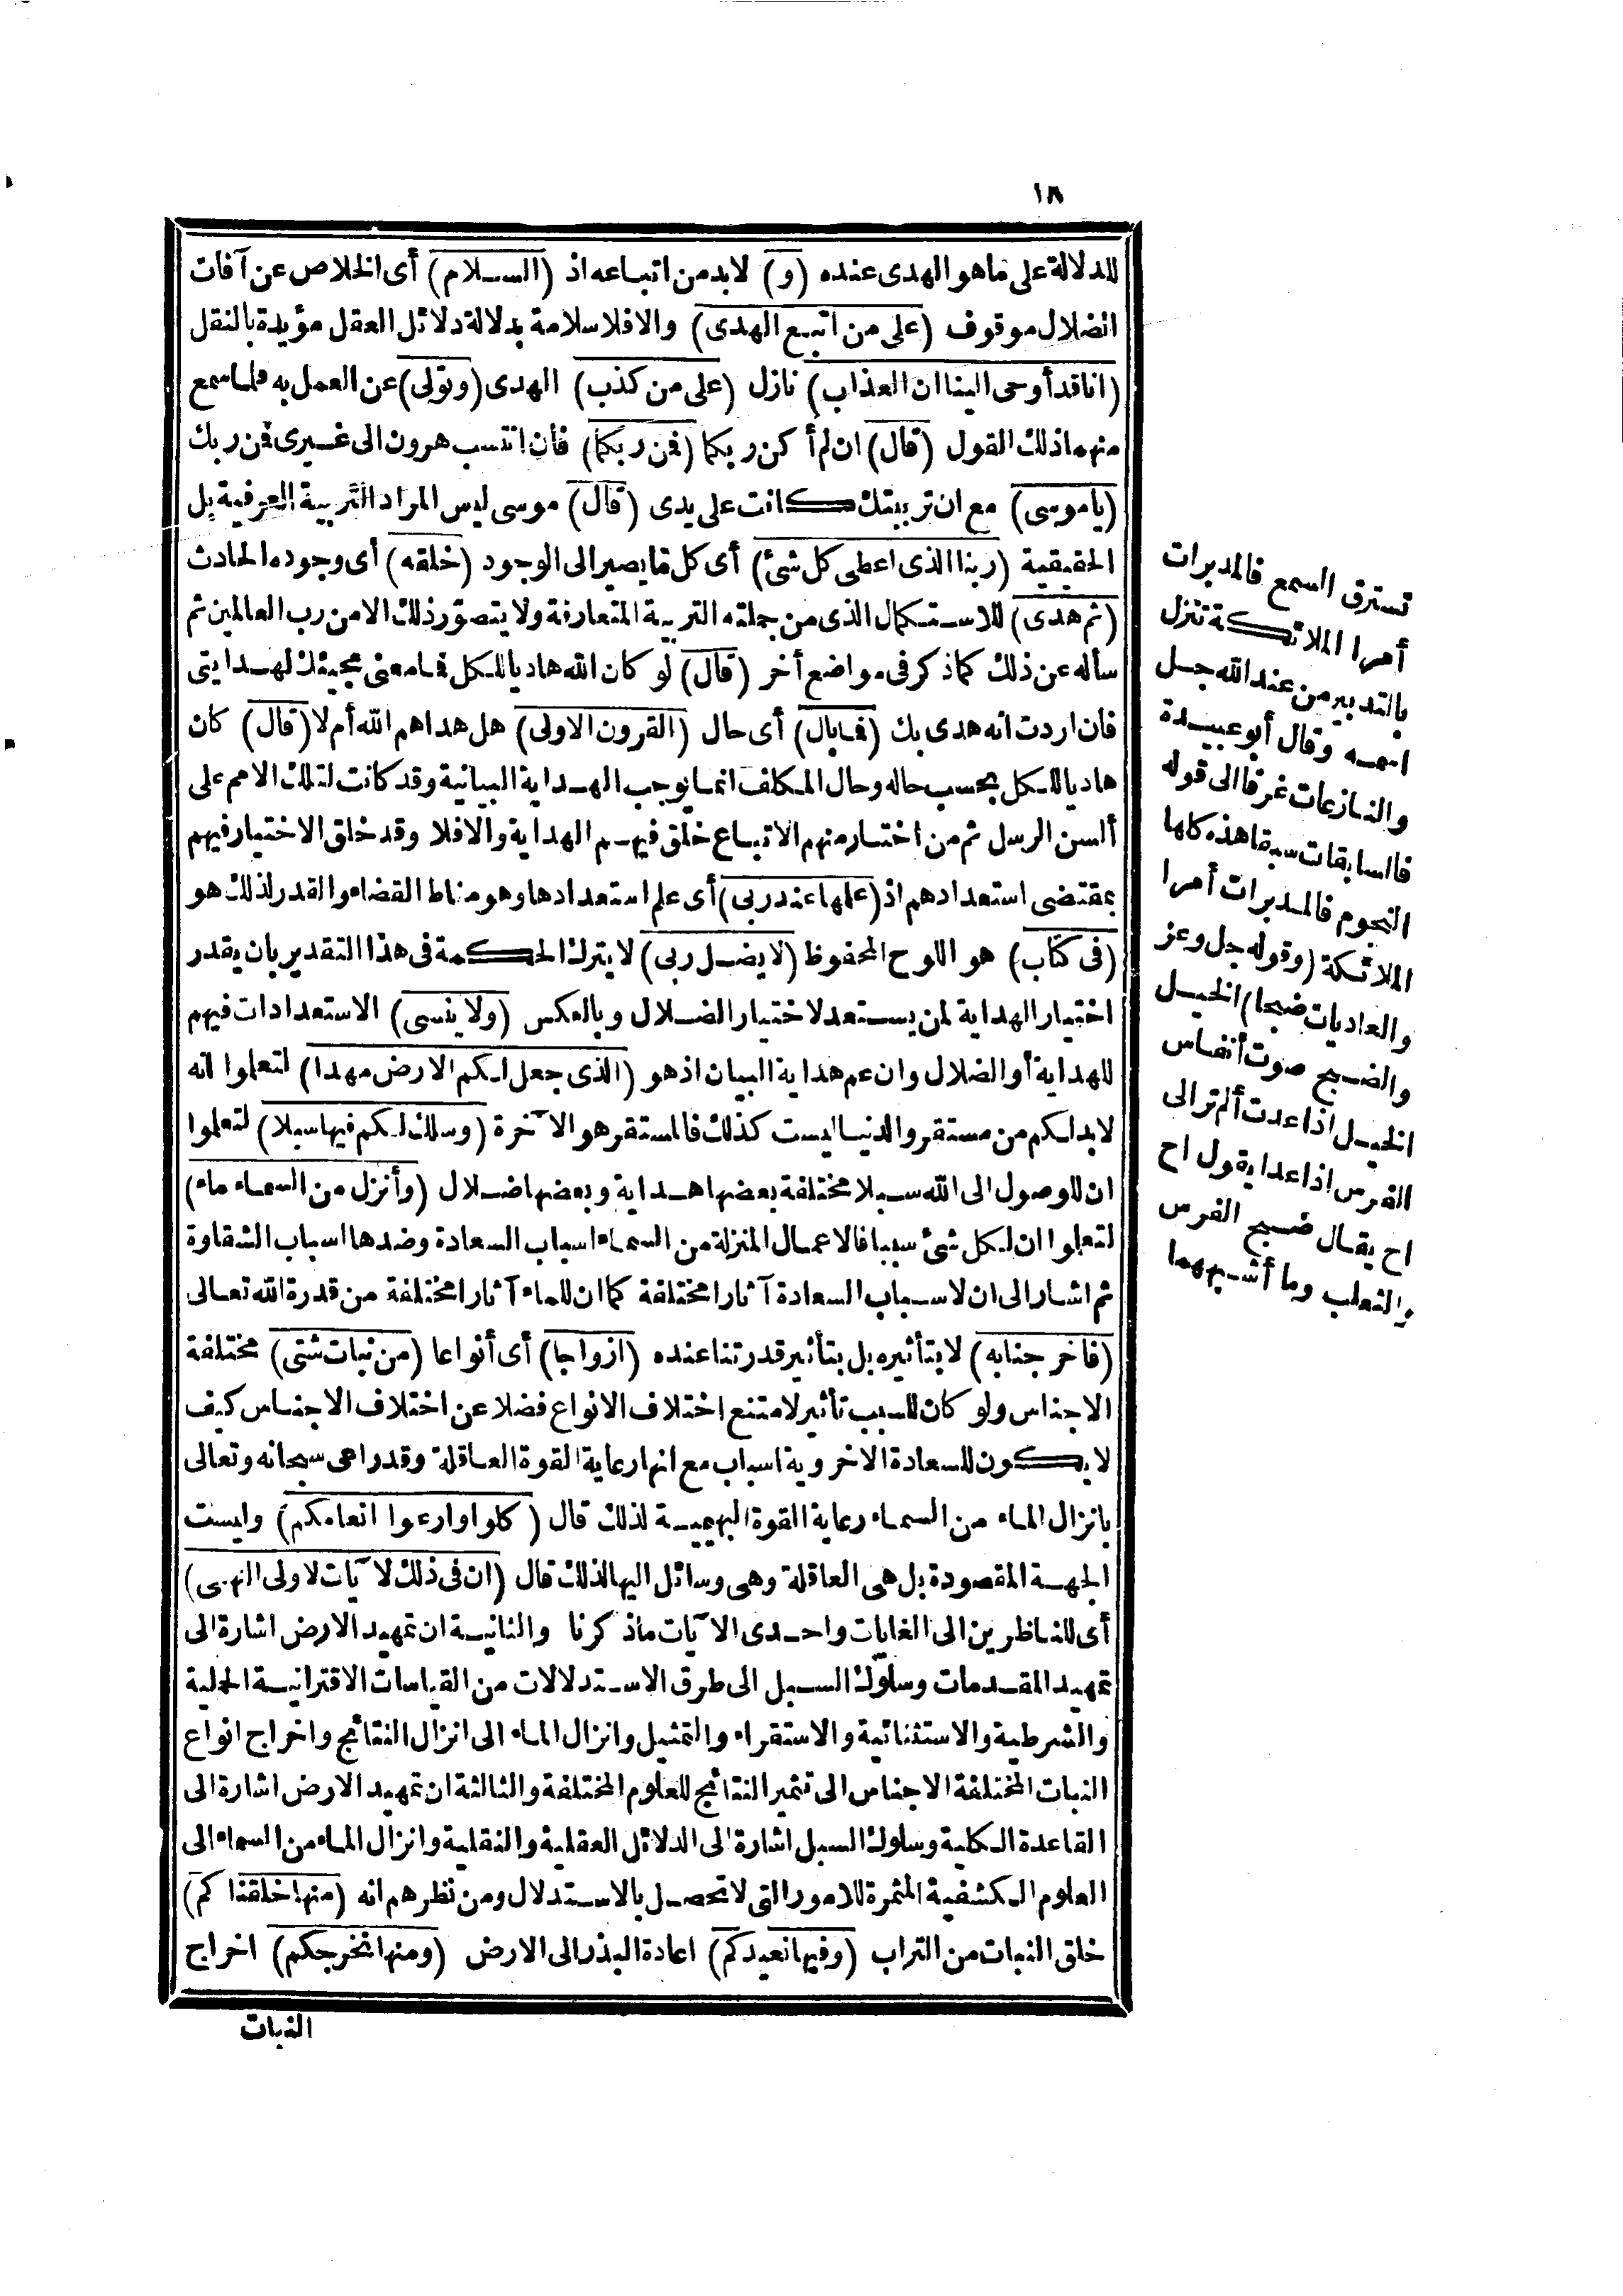 ١٨
للدلالة على ما هو الهدى عنده (و) لابد من اتباعه اذ (السلام) أى الخلاص عن آفات
الضلال موقوف (على من اتبع الهدى) والا فلا سلامة بدلالة دلائل العقل مؤيدة بالنقل
(انا قد أوحى الينا ان العذاب) نازل (على من كذب) الهدى (وتولى) عن العمل به فلما سمع
منهما ذلك القول (قال) ان لم أكن ربكما (فمن ربكما) فان انتسب هرون الى غيرى فمن ربك
(يا موسى) مع ان تربيتك كانت على يدى (قال) موسى ليس المراد التربية العرفية بل
الحقيقية (ربنا الذى اعطى كل شئ) أى كل ما يصير الى الوجود (خلقه) أى وجوده الحادث
(ثم هدى) للاستكمال الذى من جملته التربية المتعارفة ولا يتصوّر ذلك الا من رب العالمين ثم
سأله عن ذلك كما ذكر فى مواضع أخر (قال) لو كان الله هاديا للكل فما معنى مجيئك لهدايتى
فان اردت انه هدى بك (فما بال) أى حال (القرون الاولى) هل هداهم الله أم لا (قال) كان
هاديا للكل بحسب حاله وحال المكلف انما يوجب الهداية البيانية وقد كانت لتلك الامم على
ألسن الرسل ثم من اختار منهم الاتباع خلق فيهم الهداية والا فلا وقد خلق الاختيار فيهم
بمقتضى استعدادهم اذ (علمها عند ربى) أى علم استعدادها وهو مناط القضاء والقدر لذلك هو
(فى كتاب) هو اللوح المحفوظ (لا يضل ربى) لا يترك الحكمة فى هذا التقدير بان يقدر
اختيار الهداية لمن يستعد لاختيار الضلال وبالعكس (ولا ينسى) الاستعدادات فيهم
للهداية أو الضلال وان عم هداية البيان اذ هو (الذى جعل لكم الارض مهدا) لتعلموا انه
لابد لكم من مستقر والدنيا ليست كذلك فالمستقر هو الآخرة (وسلك لكم فيها سبلا) لتعلموا
ان للوصول الى الله سبلا مختلفة بعضها هداية وبعضها ضلال (وأنزل من السماء ماء)
لتعلموا ان لكل شئ سببا فالاعمال المنزلة من السماء اسباب السعادة وضدها اسباب الشقاوة
ثم اشار الى ان لاسباب السعادة آثارا مختلفة كما ان للماء آثارا مختلفة من قدرة الله تعالى
(فاخرجنا به) لا بتأثيره بل بتأثير قدرتنا عنده (ازواجا) أى أنواعا (من نبات شتى) مختلفة
الاجناس ولو كان للسبب تأثير لامتنع اختلاف الانواع فضلا عن اختلاف الاجناس كيف
لا يكون للسعادة الاخروية اسباب مع انها رعاية القوة العاقلة وقد راعى سبحانه وتعالى
بانزال الماء من السماء رعاية القوة البهيمية لذلك قال (كلوا وارعوا انعامكم) وليست
الجهة المقصودة بل هى العاقلة وهى وسائل اليها لذلك قال (ان فى ذلك لآيات لاولى النهى)
أى للناظرين الى الغايات واحدى الآيات ما ذكرنا والثانية ان تمهيد الارض اشارة الى
تمهيد المقدمات وسلوك السبل الى طرق الاستدلالات من القياسات الاقترانية الحملية
والشرطية والاستثنائية والاستقراء والتمثيل وانزال الماء الى انزال النتائج واخراج انواع
النبات المختلفة الاجناس الى تثمير النتائج للعلوم المختلفة والثالثة ان تمهيد الارض اشارة الى
القاعدة الكلية وسلوك السبل اشارة الى الدلائل العقلية والنقلية وانزال الماء من السماء الى
العلوم الكشفية المثمرة للامور التى لا تحصل بالاستدلال ومن نظرهم انه (منها خلقناكم)
خلق النبات من التراب (وفيها نعيدكم) اعادة البذر الى الارض (ومنها نخرجكم) اخراج
النبات
تسترق السمع فالمدبرات
أمرا الملائكة تنزل
بالتدبير من عند الله جل
اسمه وقال أبو عبيدة
والنازعات غرقا الى قوله
فالسابقات سبقا هذه كلها
النجوم فالمدبرات أمرا
الملائكة (وقوله جل وعز
والعاديات ضبحا) الخيل
والضبح صوت أنفاس
الخيل اذا عدت ألم تر الى
الفرس اذا عدا يقول اح
اح يقال ضبح الفرس
والثعلب وما أشبههما